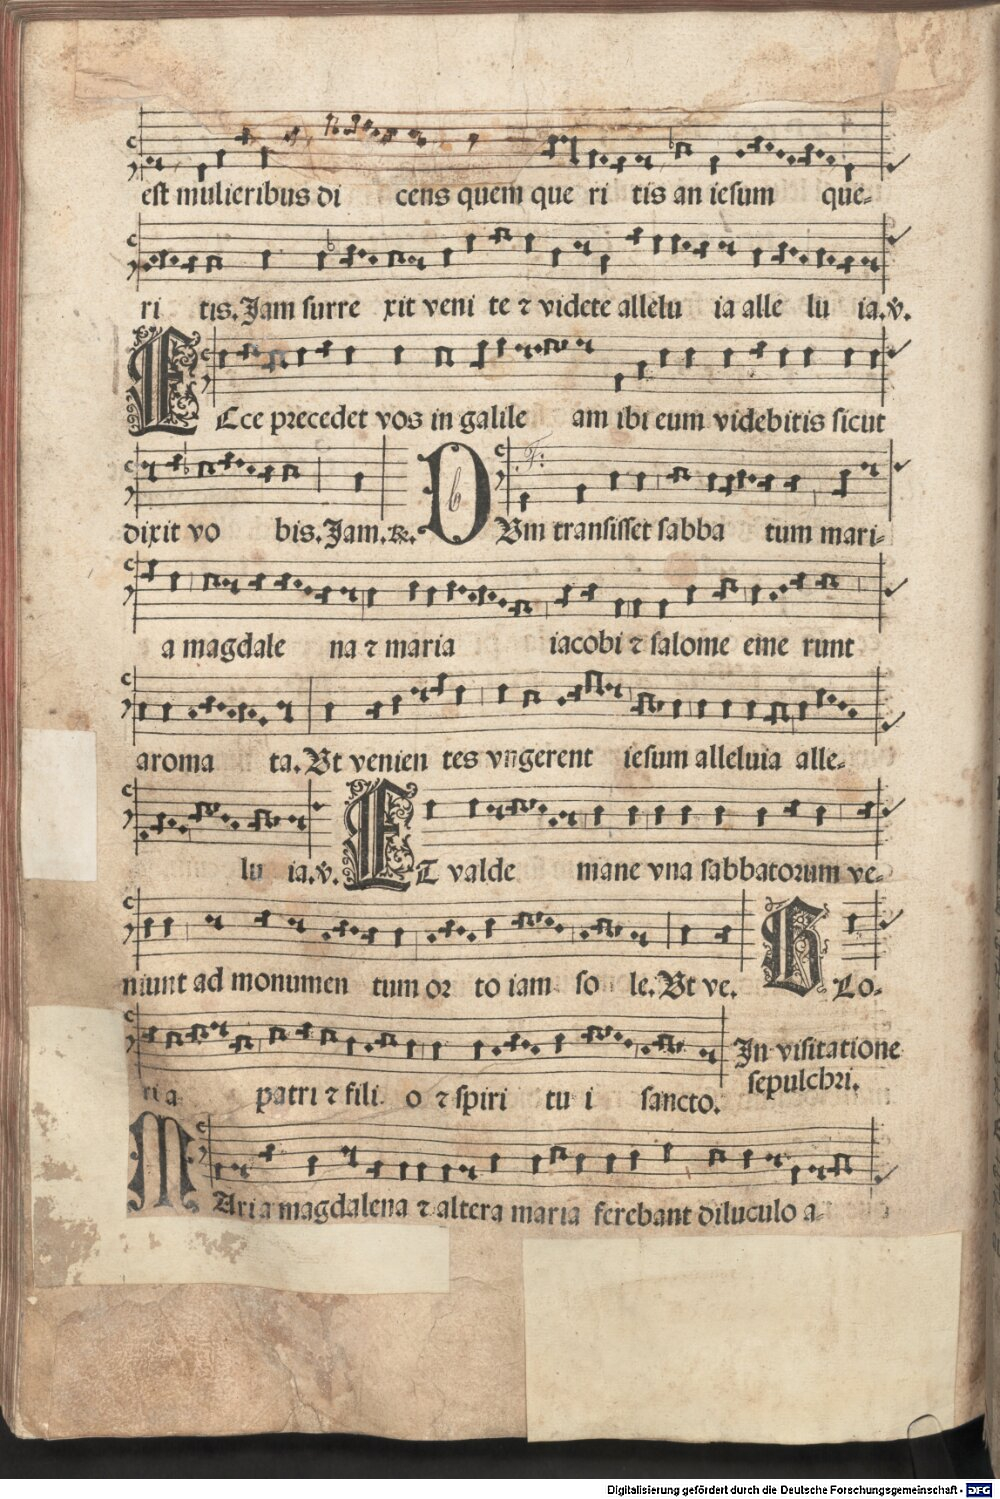 est mulieribus di cens quem que ri tis an iesum que-
ri tis. Jam surre xit veni te ⁊ videte allelu ia alle lu ia. ℣.
ECce precedet vos in galile am ibi eum videbitis sicut
dixit vo bis. Jam. ℞. DVm transisset sabba tum mari-
a magdale na ⁊ maria iacobi ⁊ salome eme runt
aroma ta. Vt venien tes vngerent iesum alleluia alle-
lu ia. ℣. ET valde mane vna sabbatorum ve-
niunt ad monumen tum or to iam so le. Vt ve. GLo-
ri a patri ⁊ fili o ⁊ spiri tu i sancto. In visitatione
sepulchri.
MAria magdalena ⁊ altera maria ferebant diluculo a-
Digitalisierung gefördert durch die Deutsche Forschungsgemeinschaft - DFG